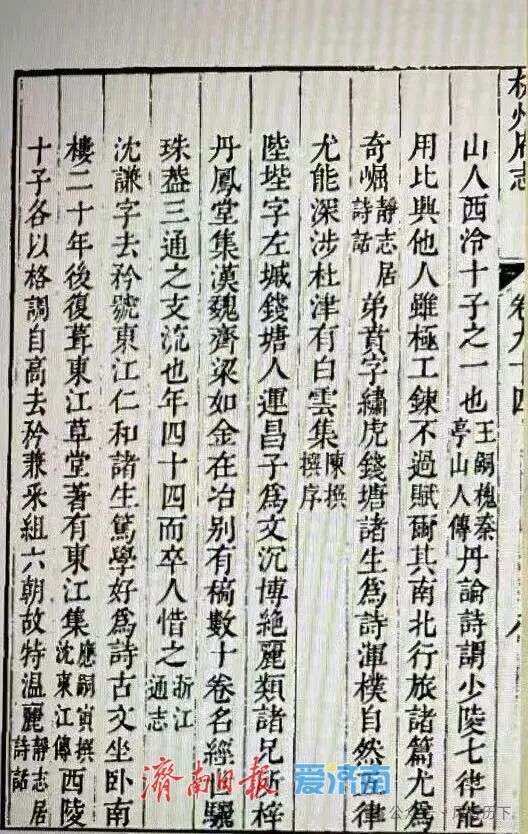 杭州府志 卷九十四
山人西泠十子之一也王嗣槐秦亭山人傳丹論詩謂少陵七律能
用比與他人雖極工鍊不過賦爾其南北行旅諸篇尤爲
奇崛靜志居詩話弟賁字繡虎錢塘諸生爲詩渾樸自然五律
尤能深涉杜津有白雲集陳撰撰序
陸堦字左墄錢塘人運昌子爲文沉博絶麗類諸兄所梓
丹鳳堂集漢魏齊梁如金在冶别有稿數十卷名經驪
珠盡三通之支流也年四十四而卒人惜之浙江通志
沈謙字去矜號東江仁和諸生篤學好爲詩古文坐卧南
樓二十年後復葺東江草堂著有東江集應嗣寅撰沈東江傳西陵
十子各以格調自高去矜兼采組六朝故特温麗靜志居詩話
濟南日报 爱济南
公众号·
历下